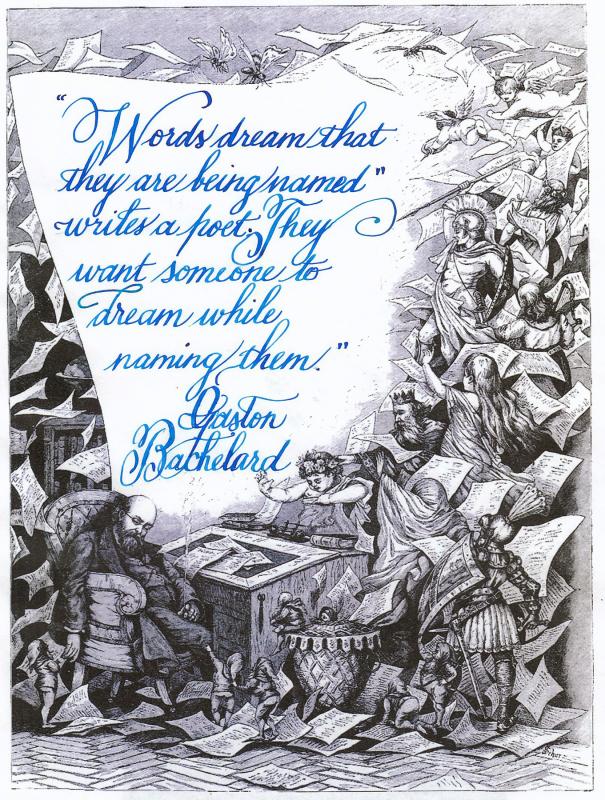 "Words dream that
they are being named"
writes a poet. They
want someone to
dream while
naming them."
Gaston
Bachelard